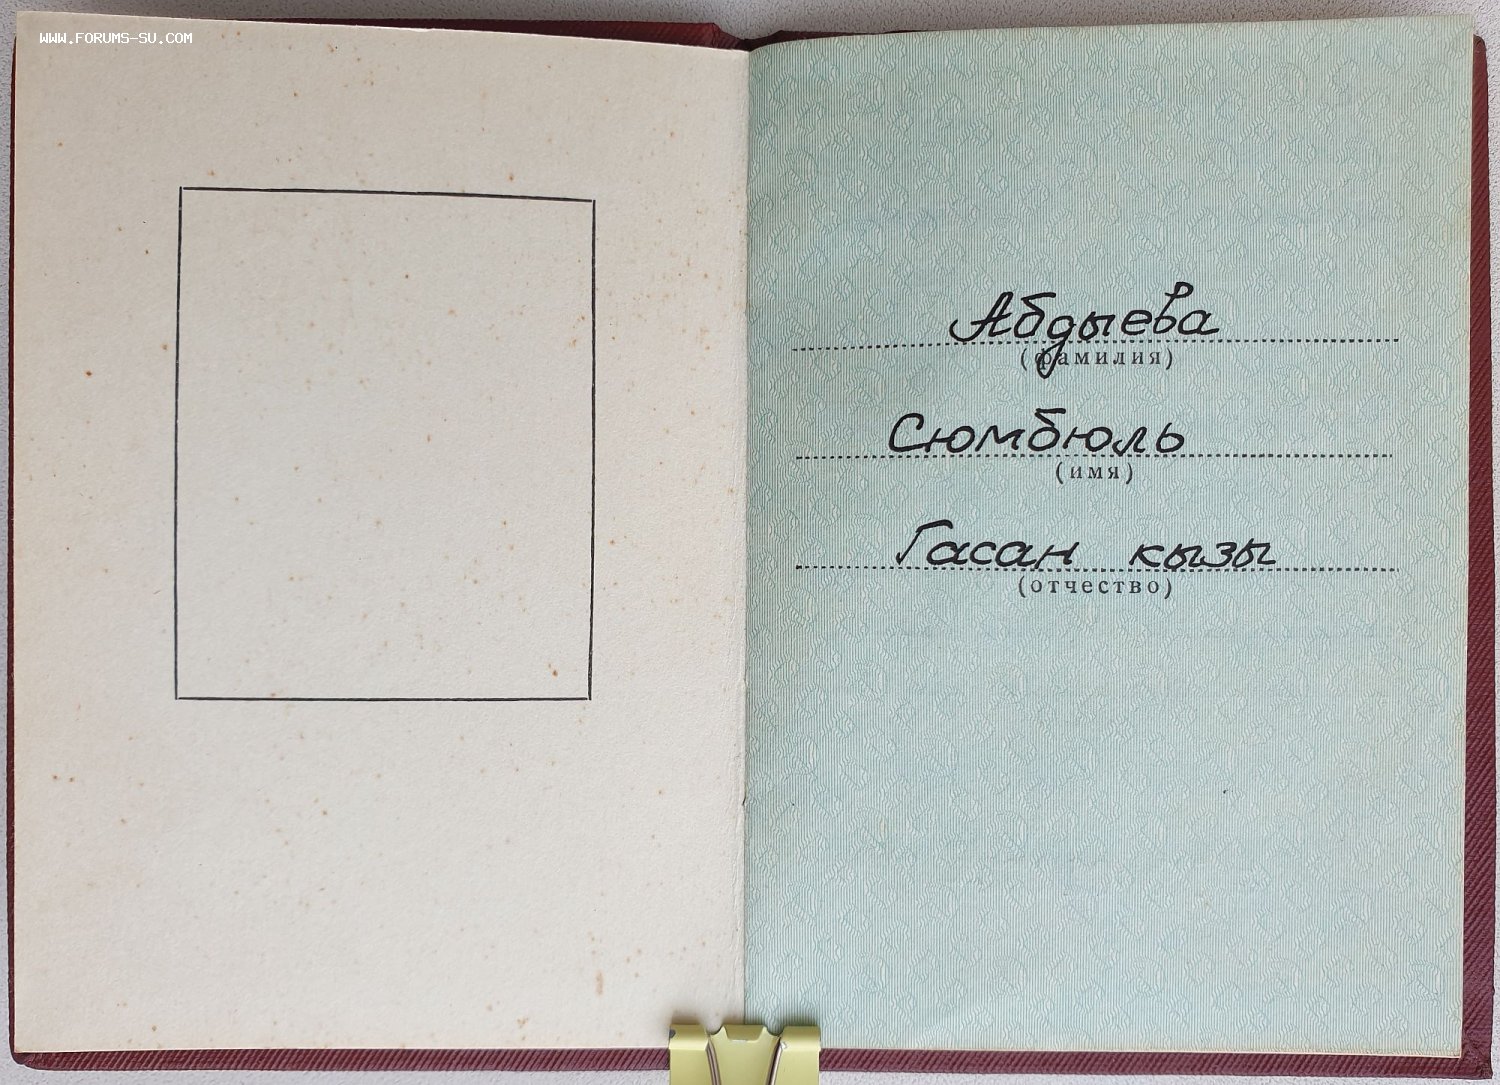 WWW.FORUMS-SU.COM
Абдыева
(фамилия)
Сюмбюль
(имя)
Гасан кызы
(отчество)